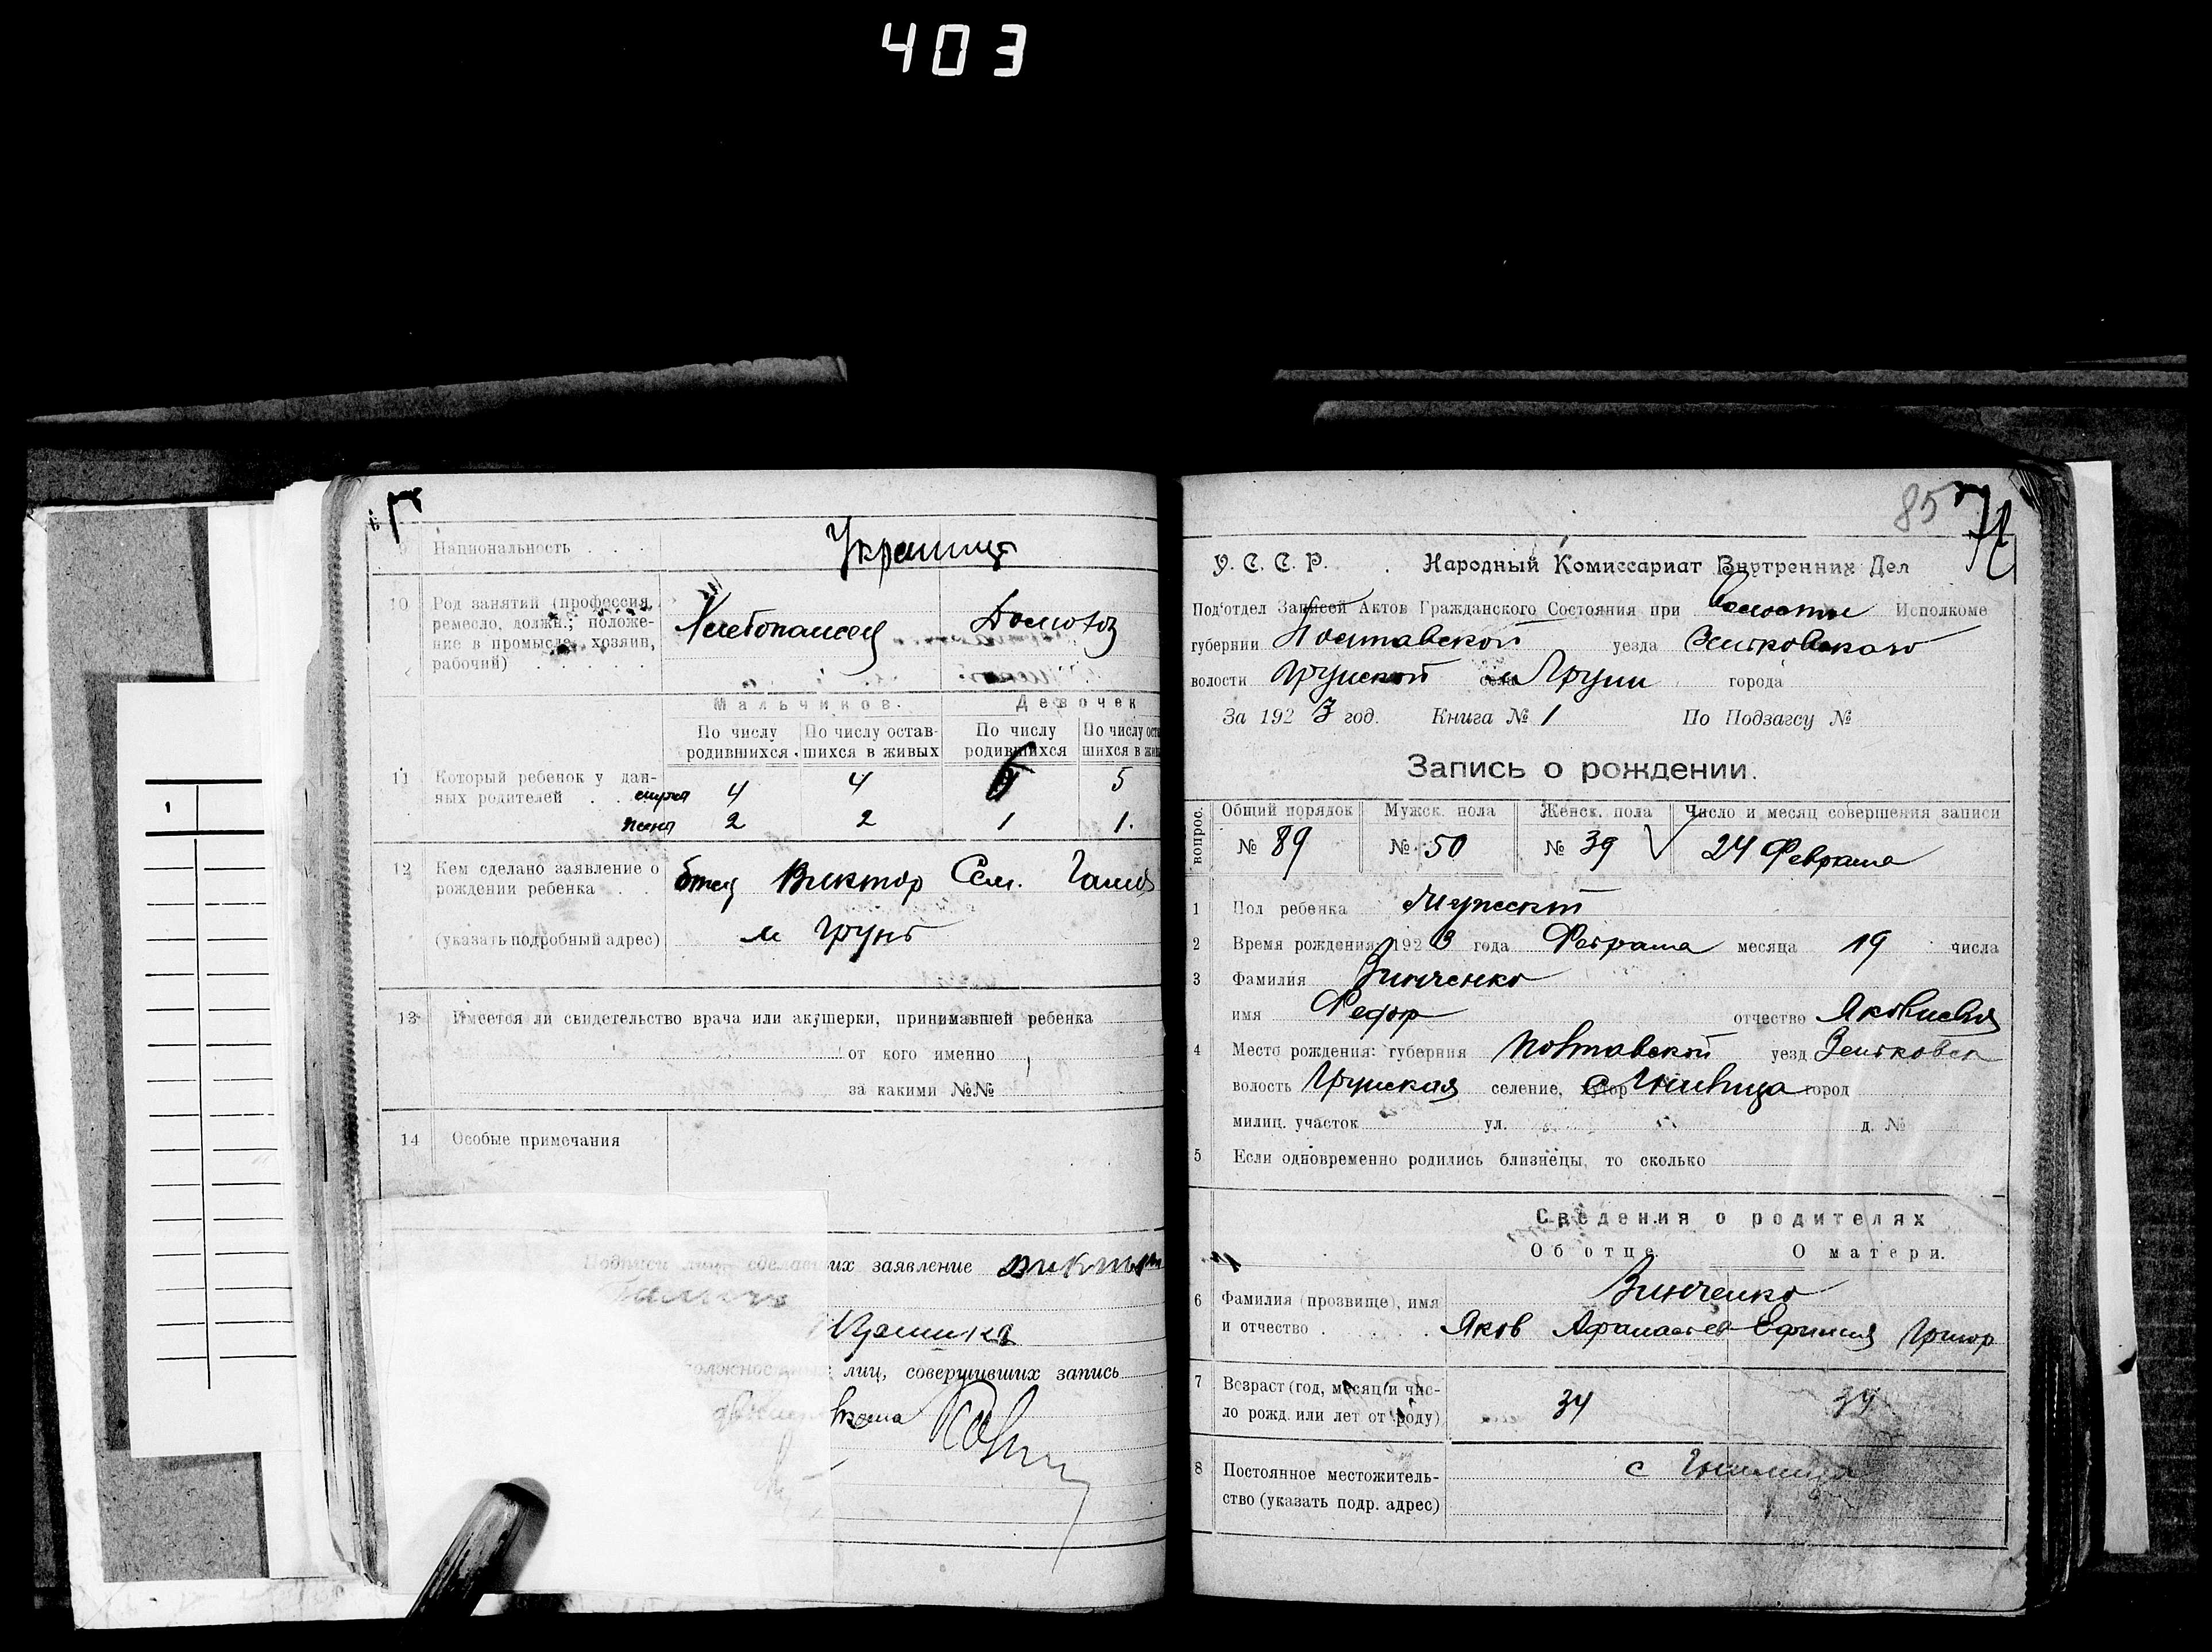 403
9 Национальность . . . Украинцы
10 Род занятий (профессия, ремесло, должн.; положе-
ние в промысле, хозяин,
рабочий) . . . . . Хлебопашец Домохоз
Мальчиков. Девочек
По числу родившихся По числу остав-шихся в живых По числу родившихся По числу оста шихся в жив
11 Который ребенок у дан-
ных родителей . . 4 4 5
2 2 1 1.
12 Кем сделано заявление о
рождении ребенка . . Отец Виктор Сем.
(указать подробный адрес) м Грунь
13 Имеется ли свидетельство врача или акушерки, принимавшей ребенка
от кого именно
за какими №№
14 Особые примечания
Подписи лиц сделавших заявление
лиц, совершивших запись
85
У. С. С. Р. Народный Комиссариат Внутренних Дел
Под'отдел Записей Актов Гражданского Состояния при Волостн Исполкоме
губернии Полтавской уезда Зеньковского
волости Грунской села м Груни города
За 1923 год. Книга № 1 По Подзагсу №
Запись о рождении.
вопрос. Общий порядок Мужск. пола Женск. пола Число и месяц совершения записи
№ 89 № 50 № 39 24 Февраля
1 Пол ребенка Мужской
2 Время рождения 1923 года Февраля месяца 19 числа
3 Фамилия Зинченко
имя Федор отчество Яковлевич
4 Место рождения: губерния Полтавской уезд Зеньковск
волость Грунская селение, хутор с Гнилица город
милиц. участок ул. д. №
5 Если одновременно родились близнецы, то сколько
Сведения о родителях
Об отце. О матери.
Зинченко
6 Фамилия (прозвище), имя
и отчество . . . . . Яков Афанасьев Ефимия Григор
7 Возраст (год, месяц и чис-
ло рожд. или лет от роду) 34 34
8 Постоянное местожитель-
ство (указать подр. адрес) с Гнилица